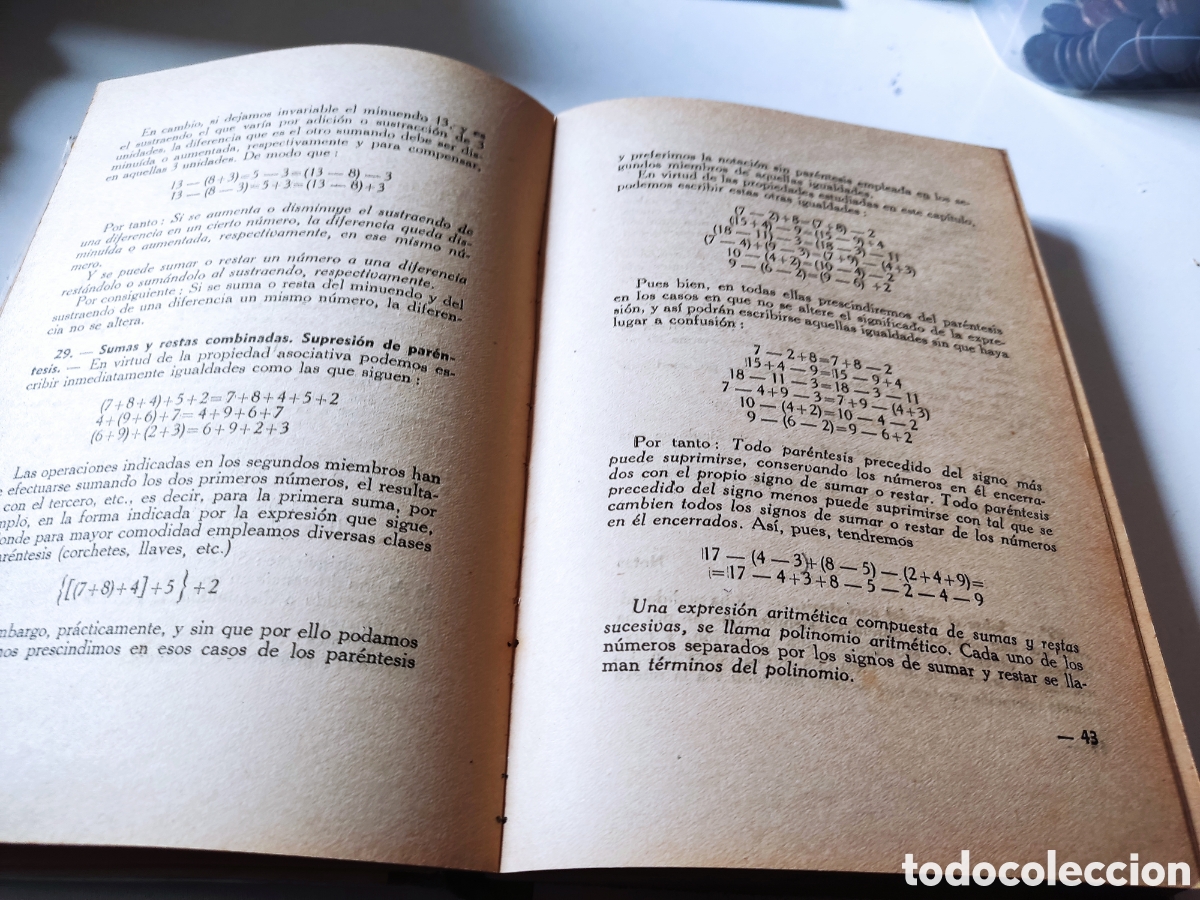 En cambio, si dejamos invariable el minuendo 13, y es
el sustraendo el que varía por adición o sustracción de 3
unidades, la diferencia que es el otro sumando debe ser dis-
minuída o aumentada, respectivamente y para compensar,
en aquellas 3 unidades. De modo que:
13 — (8+3)=5 — 3=(13 — 8) — 3
13 — (8 — 3)=5+3=(13 — 8)+3
Por tanto: Si se aumenta o disminuye el sustraendo de
una diferencia en un cierto número, la diferencia queda dis-
minuída o aumentada, respectivamente, en ese mismo nú-
mero.
Y se puede sumar o restar un número a una diferencia
restándolo o sumándolo al sustraendo, respectivamente.
Por consiguiente: Si se suma o resta del minuendo y del
sustraendo de una diferencia un mismo número, la diferen-
cia no se altera.
29. — Sumas y restas combinadas. Supresión de parén-
tesis. — En virtud de la propiedad asociativa podemos es-
cribir inmediatamente igualdades como las que siguen:
(7+8+4)+5+2=7+8+4+5+2
4+(9+6)+7=4+9+6+7
(6+9)+(2+3)=6+9+2+3
Las operaciones indicadas en los segundos miembros han
efectuarse sumando los dos primeros números, el resulta-
con el tercero, etc., es decir, para la primera suma, por
mplo, en la forma indicada por la expresión que sigue,
onde para mayor comodidad empleamos diversas clases
aréntesis (corchetes, llaves, etc.)
{[(7+8)+4]+5}+2
mbargo, prácticamente, y sin que por ello podamos
nos prescindimos en esos casos de los paréntesis
y preferimos la notación sin paréntesis empleada en los se-
gundos miembros de aquellas igualdades.
En virtud de las propiedades estudiadas en este capítulo,
podemos escribir estas otras igualdades:
(7 — 2)+8=(7+8) — 2
(15+4) — 9=(15 — 9)+4
(18 — 11) — 3=(18 — 3) — 11
(7 — 4)+(9 — 3)=(7+9) — (4+3)
10 — (4+2)=(10 — 4) — 2
9 — (6 — 2)=(9 — 6) +2
Pues bien, en todas ellas prescindiremos del paréntesis
en los casos en que no se altere el significado de la expre-
sión, y así podrán escribirse aquellas igualdades sin que haya
lugar a confusión:
7 — 2+8=7+8 — 2
15+4 — 9=15 — 9+4
18 — 11 — 3=18 — 3 — 11
7 — 4+9 — 3=7+9 — (4+3)
10 — (4+2)=10 — 4 — 2
9 — (6 — 2)=9 — 6+2
Por tanto: Todo paréntesis precedido del signo más
puede suprimirse, conservando los números en él encerra-
dos con el propio signo de sumar o restar. Todo paréntesis
precedido del signo menos puede suprimirse con tal que se
cambien todos los signos de sumar o restar de los números
en él encerrados. Así, pues, tendremos
17 — (4 — 3)+(8 — 5) — (2+4+9)=
=17 — 4+3+8 — 5 — 2 — 4 — 9
Una expresión aritmética compuesta de sumas y restas
sucesivas, se llama polinomio aritmético. Cada uno de los
números separados por los signos de sumar y restar se lla-
man términos del polinomio.
— 43
todocoleccion